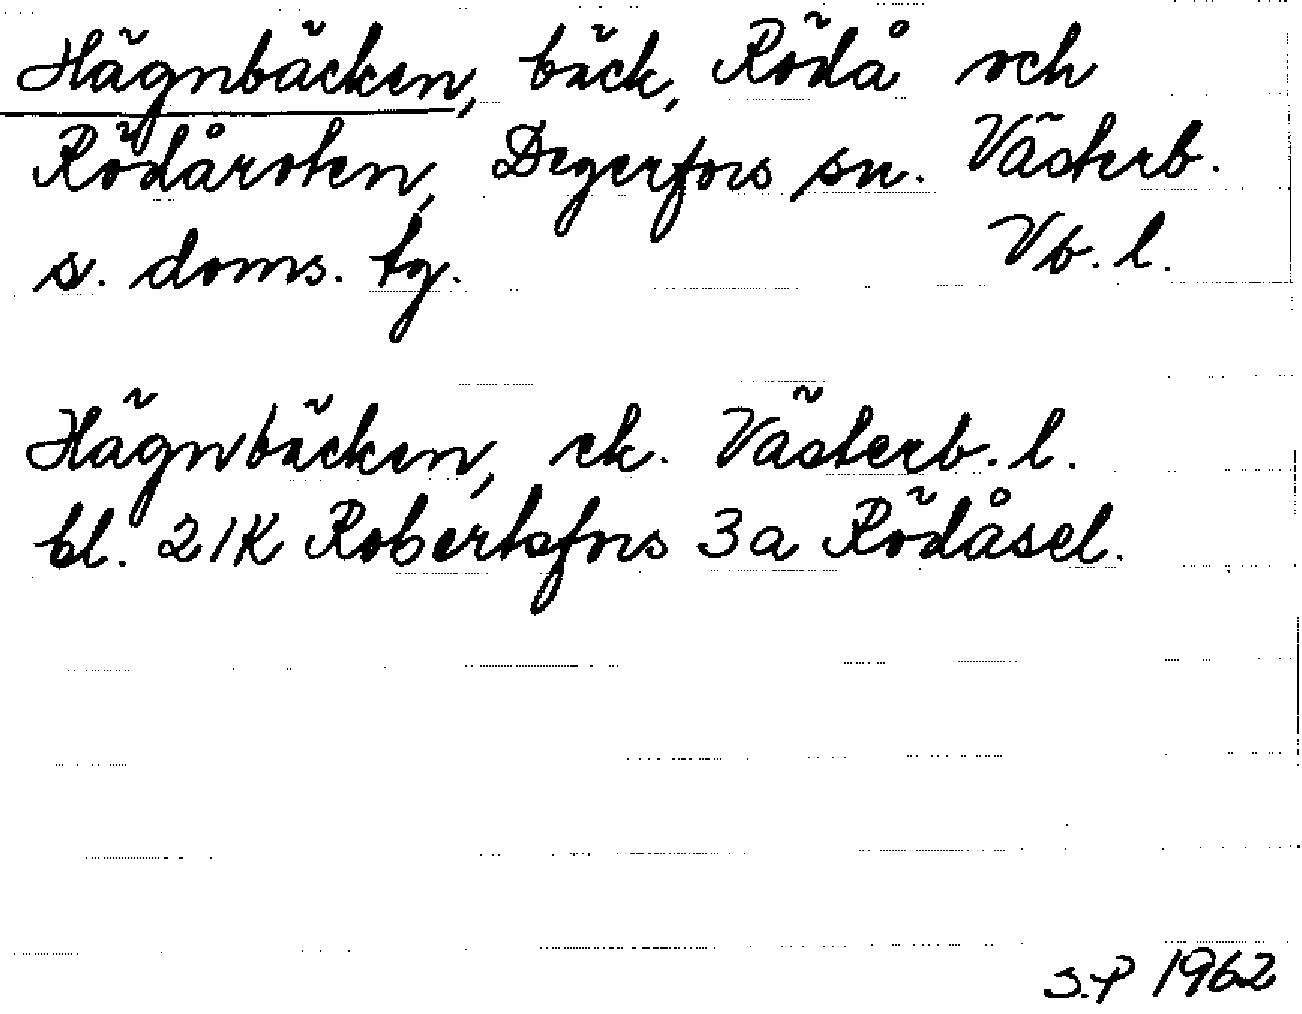 Hägnbäcken, bäck, Rödå och
Rödåroten, Degerfors sn. Västerb.
s. doms. tg. Vb. l.
Hägnbäcken, ek. Västerb. l.
bl. 21K Robertsfors 3a Rödåsel.
S.P 1962